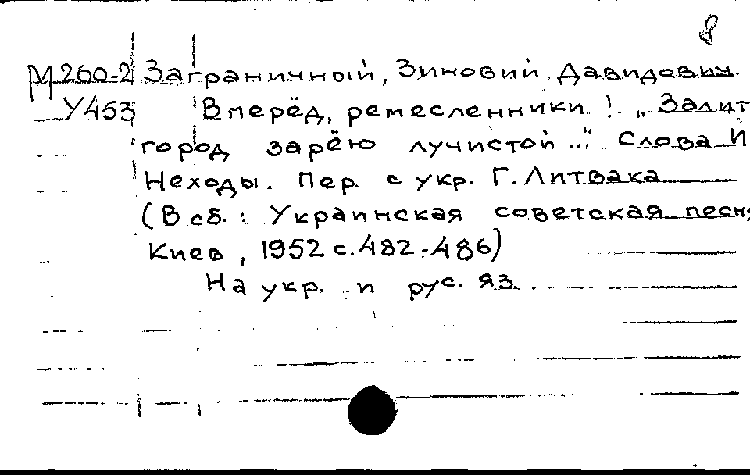 8
М260-2 Заграничный, Зиновий Давидович.
У453 Вперёд, ремесленники! „Залит
город зарёю лучистой..." Слова И
Неходы. Пер. с укр. Г. Литвака
(В сб.: Украинская советская песня
Киев, 1952 с. 482-486)
На укр. и рус. яз.